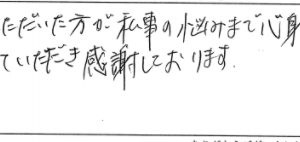 ただいた方が私事の悩みまで心身
ていただき感謝しております。